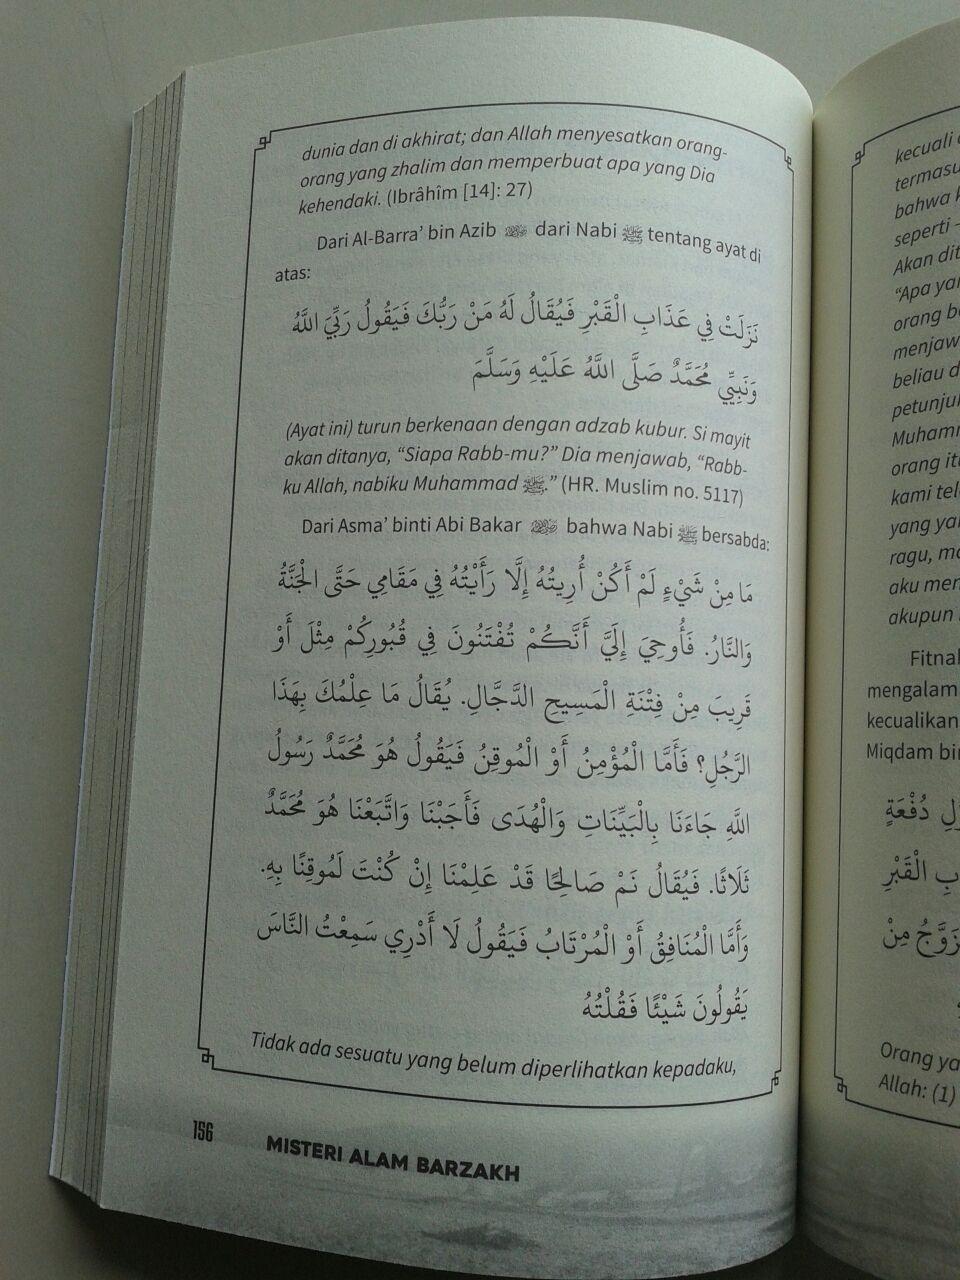 dunia dan di akhirat; dan Allah menyesatkan orang-
orang yang zhalim dan memperbuat apa yang Dia
kehendaki. (Ibrâhîm [14]: 27)
Dari Al-Barra’ bin Azib dari Nabi ﷺ tentang ayat di
atas:
نَزَلَتْ فِي عَذَابِ الْقَبْرِ فَيُقَالُ لَهُ مَنْ رَبُّكَ فَيَقُولُ رَبِّيَ اللَّهُ
وَنَبِيِّي مُحَمَّدٌ صَلَّى اللَّهُ عَلَيْهِ وَسَلَّمَ
(Ayat ini) turun berkenaan dengan adzab kubur. Si mayit
akan ditanya, “Siapa Rabb-mu?” Dia menjawab, “Rabb-
ku Allah, nabiku Muhammad ﷺ.” (HR. Muslim no. 5117)
Dari Asma’ binti Abi Bakar bahwa Nabi ﷺ bersabda:
مَا مِنْ شَيْءٍ لَمْ أَكُنْ أُرِيتُهُ إِلَّا رَأَيْتُهُ فِي مَقَامِي حَتَّى الْجَنَّةُ
وَالنَّارُ. فَأُوحِيَ إِلَيَّ أَنَّكُمْ تُفْتَنُونَ فِي قُبُورِكُمْ مِثْلَ أَوْ
قَرِيبَ مِنْ فِتْنَةِ الْمَسِيحِ الدَّجَّالِ. يُقَالُ مَا عِلْمُكَ بِهَذَا
الرَّجُلِ؟ فَأَمَّا الْمُؤْمِنُ أَوْ الْمُوقِنُ فَيَقُولُ هُوَ مُحَمَّدٌ رَسُولُ
اللَّهِ جَاءَنَا بِالْبَيِّنَاتِ وَالْهُدَى فَأَجَبْنَا وَاتَّبَعْنَا هُوَ مُحَمَّدٌ
ثَلَاثًا. فَيُقَالُ نَمْ صَالِحًا قَدْ عَلِمْنَا إِنْ كُنْتَ لَمُوقِنًا بِهِ.
وَأَمَّا الْمُنَافِقُ أَوْ الْمُرْتَابُ فَيَقُولُ لَا أَدْرِي سَمِعْتُ النَّاسَ
يَقُولُونَ شَيْئًا فَقُلْتُهُ
Tidak ada sesuatu yang belum diperlihatkan kepadaku,
156 MISTERI ALAM BARZAKH
kecuali
bahwa
seperti
Akan
“Apa
orang
beliau
Muhamm
orang
kami
yang
ragu,
aku
akupun
mengalam
kecualikan
Miqdam
دُفْعَةٍ
الْقَبْرِ
مِنْ
Orang
Allah: (1)